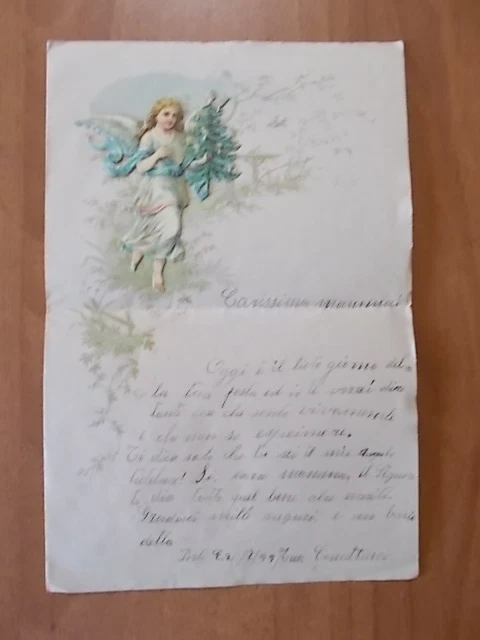 Carissima mamma!
Oggi è il lieto giorno del
la tua festa ed io ti vorrei dire
tante cose che sento vivamente
e che non so esprimere.
Ti dico solo che tu sei il mio angelo
Sì, cara mamma, il Signore
ti dia tutto quel bene che meriti.
Gradisci mille auguri e un bacio
dalla
tua